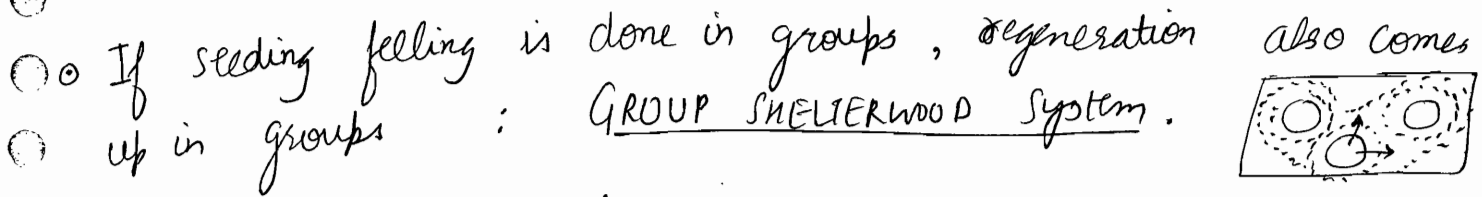 ⊙ If seeding felling is done in groups, regeneration also comes
up in groups : GROUP SHELTERWOOD System.